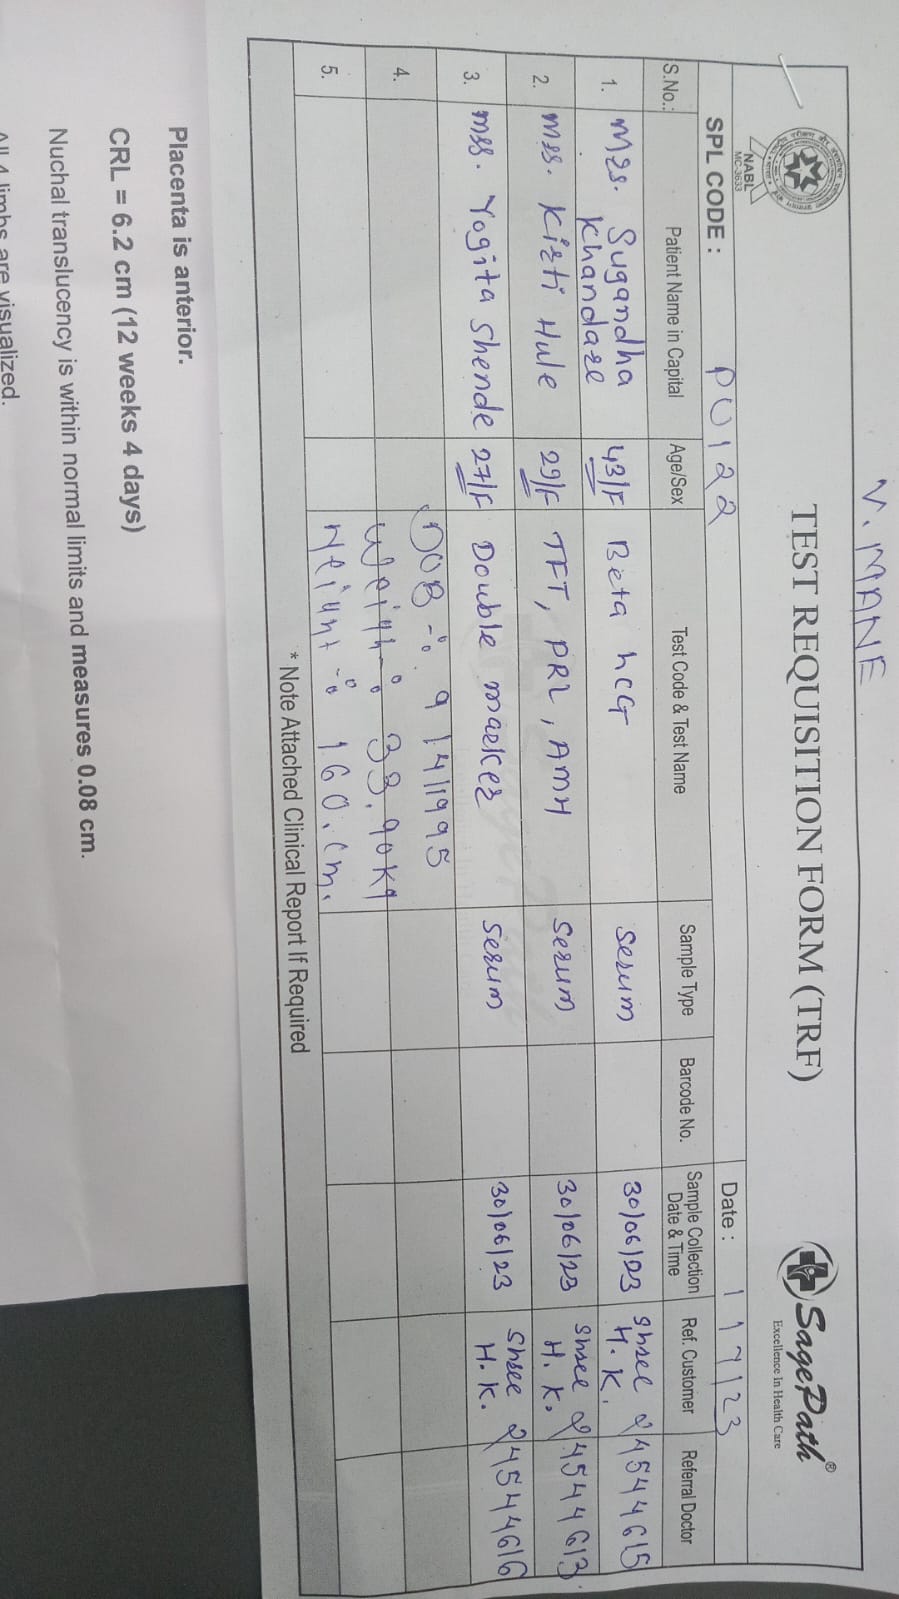 V. MANE
TEST REQUISITION FORM (TRF)
NABL
MC-3633
SagePath®
Excellence In Health Care
SPL CODE : PU122
Date : 1/7/23
S.No.: Patient Name in Capital Age/Sex Test Code & Test Name Sample Type Barcode No. Sample Collection Date & Time Ref. Customer Referral Doctor
1. Mrs. Sugandha Khandare 43/F Beta hCG Serum 30/06/23 Shree H.K. 24544615
2. Mrs. Kirti Hule 29/F TFT, PRL, AMH Serum 30/06/23 Shree H.K. 24544613
3. Mrs. Yogita Shende 27/F Double marker Serum 30/06/23 Shree H.K. 24544616
DOB -: 9/4/1995
4. Weigh-: 33.90kg
5. Height -: 160.cm.
* Note Attached Clinical Report If Required
Placenta is anterior.
CRL = 6.2 cm (12 weeks 4 days)
Nuchal translucency is within normal limits and measures 0.08 cm.
All 4 limbs are visualized.